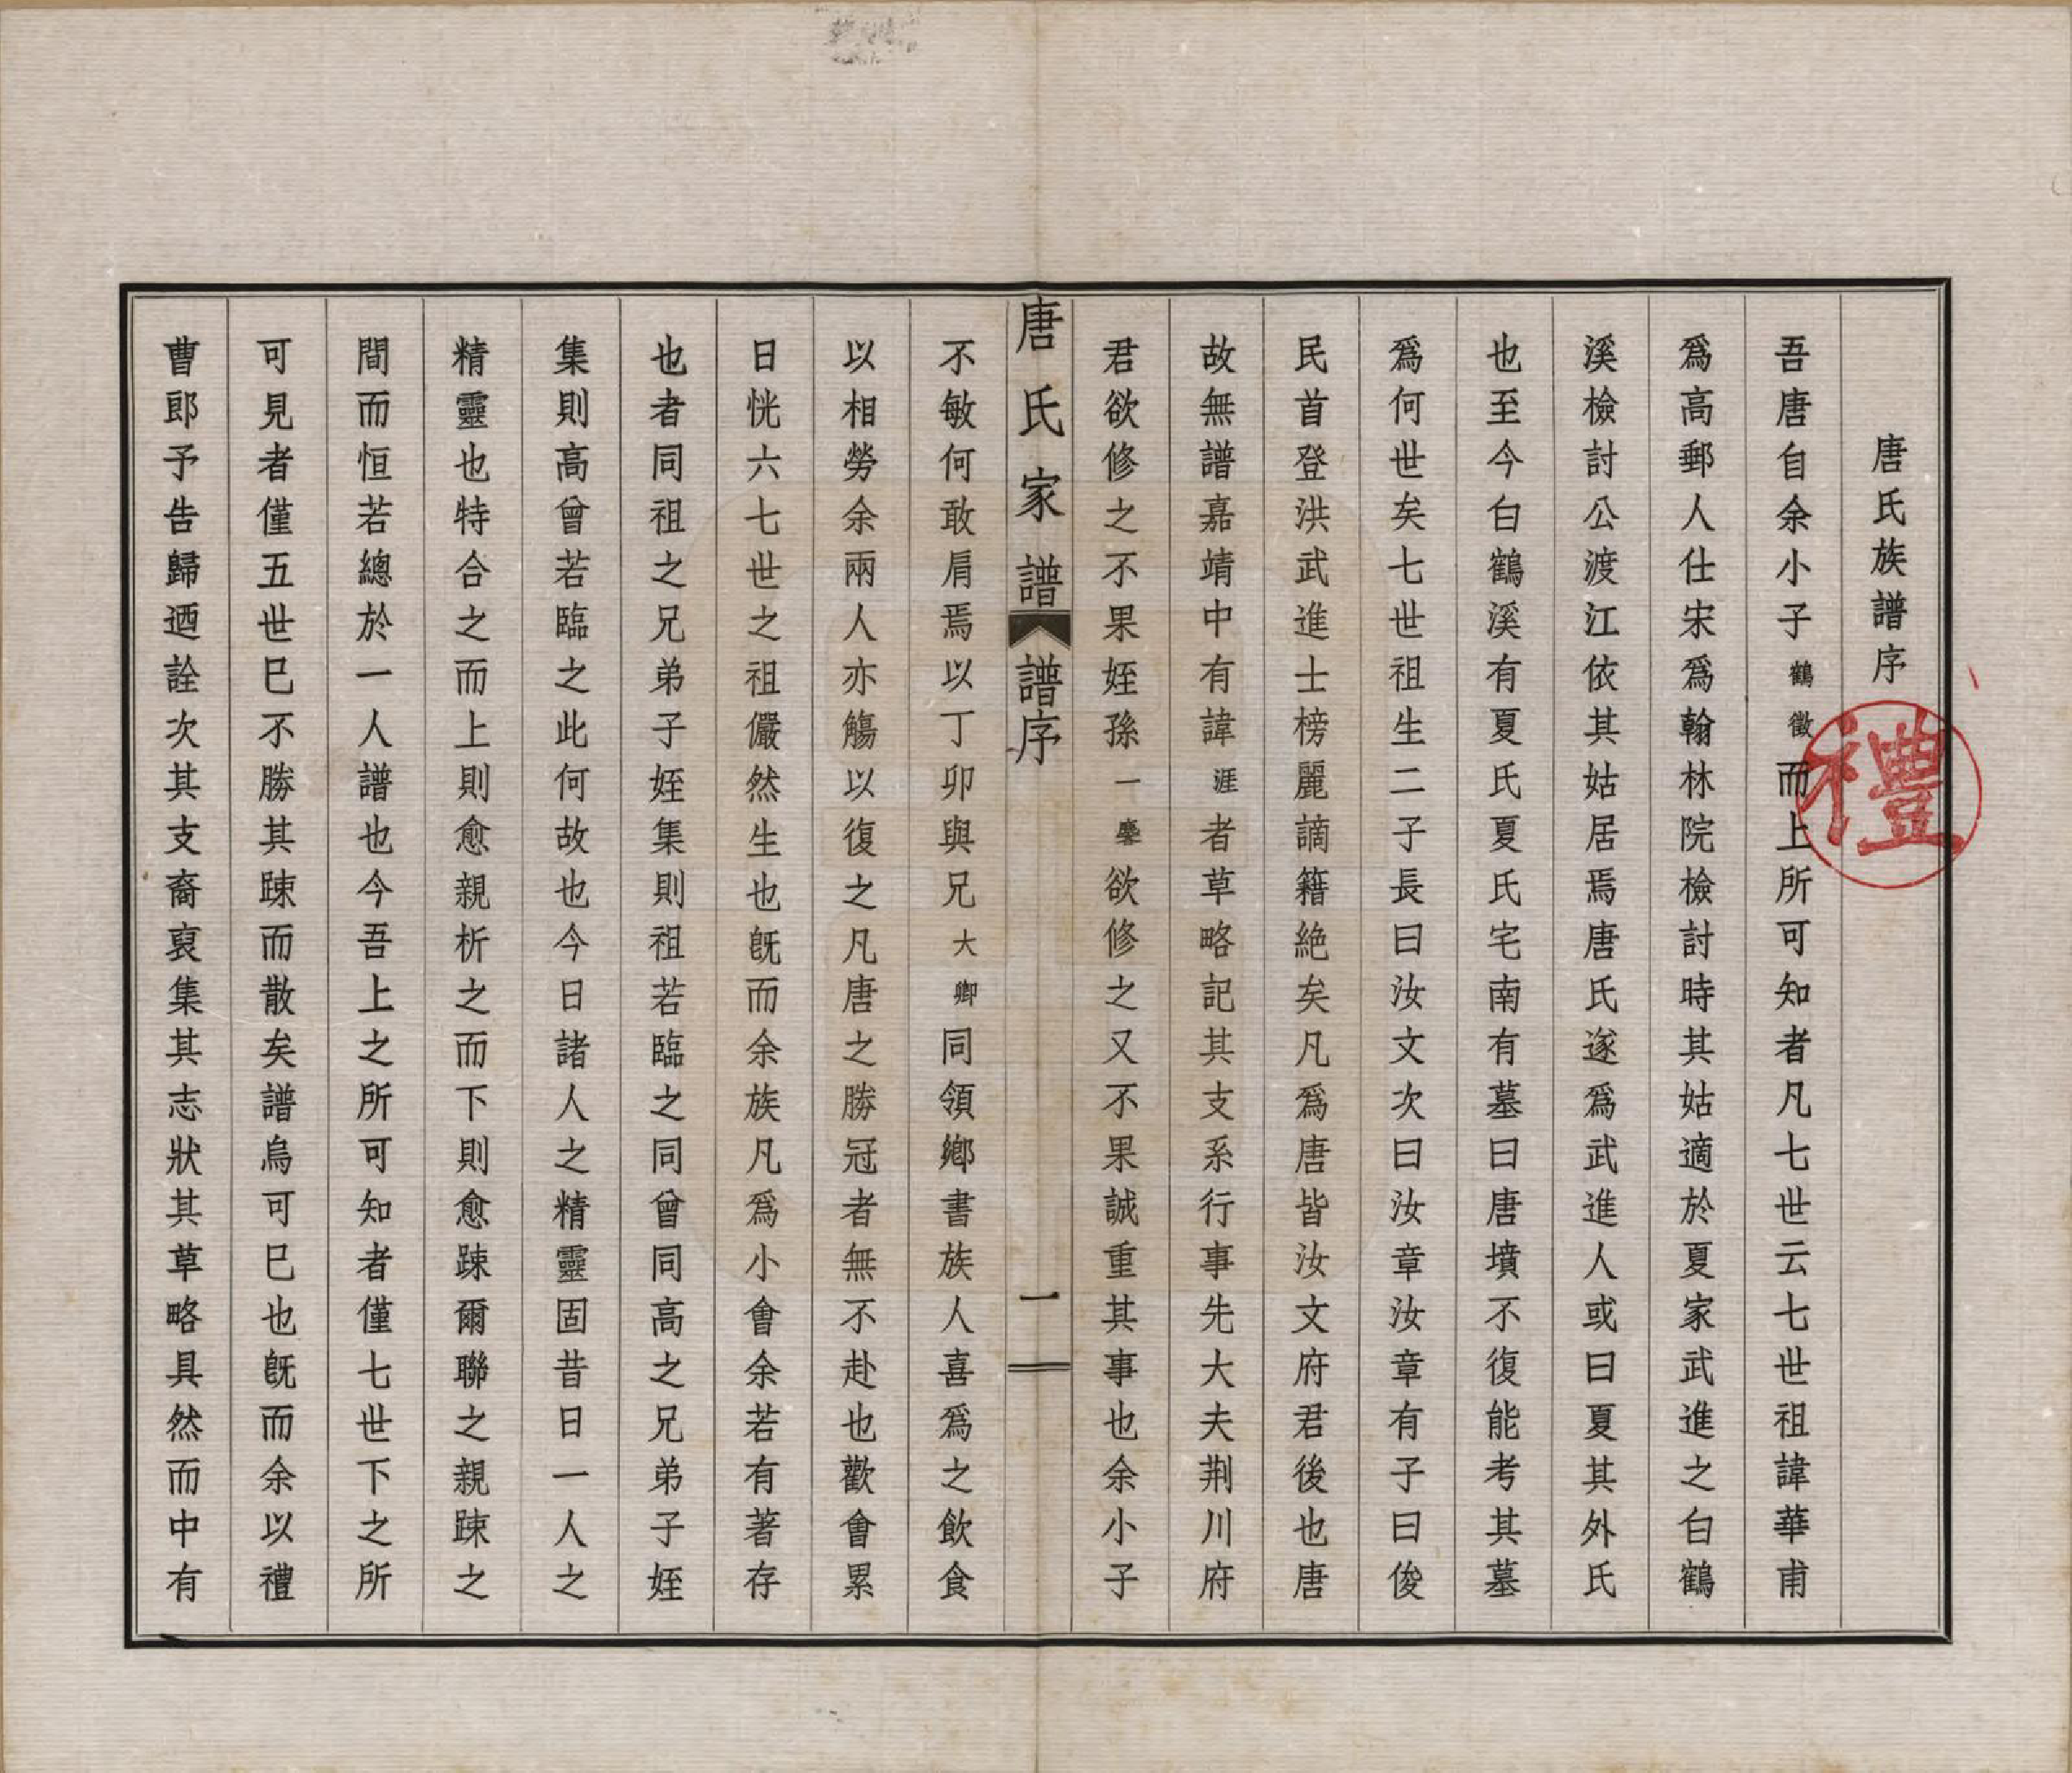 唐氏族譜序
吾唐自余小子鶴徵而上所可知者凡七世云七世祖諱華甫
爲高郵人仕宋爲翰林院檢討時其姑適於夏家武進之白鶴
溪檢討公渡江依其姑居焉唐氏遂爲武進人或曰夏其外氏
也至今白鶴溪有夏氏夏氏宅南有墓曰唐墳不復能考其墓
爲何世矣七世祖生二子長曰汝文次曰汝章汝章有子曰俊
民首登洪武進士榜麗謫籍絶矣凡爲唐皆汝文府君後也唐
故無譜嘉靖中有諱涯者草略記其支系行事先大夫荆川府
君欲修之不果姪孫一麐欲修之又不果誠重其事也余小子
唐氏家譜
譜序
一
不敏何敢肩焉以丁卯與兄大卿同領鄉書族人喜爲之飲食
以相勞余兩人亦觴以復之凡唐之勝冠者無不赴也歡會累
日恍六七世之祖儼然生也旣而余族凡爲小會余若有著存
也者同祖之兄弟子姪集則祖若臨之同曾同高之兄弟子姪
集則高曾若臨之此何故也今日諸人之精靈固昔日一人之
精靈也特合之而上則愈親析之而下則愈踈爾聯之親踈之
間而恒若總於一人譜也今吾上之所可知者僅七世下之所
可見者僅五世巳不勝其踈而散矣譜烏可巳也旣而余以禮
曹郎予告歸迺詮次其支裔裒集其志狀其草略具然而中有
禮